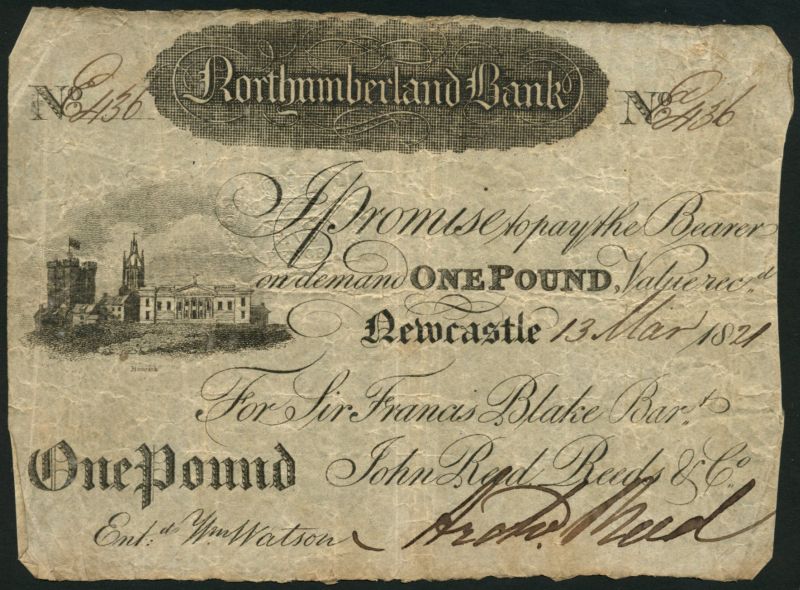 Northumberland Bank
No E436 No E436
I Promise to pay the Bearer
on demand ONE POUND, Value rec.d
Newcastle 13 Mar 1821
For Sir Francis Blake Bar.t
One Pound John Reed Reeds & Co.
Ent.d Wm Watson Archd. Reed